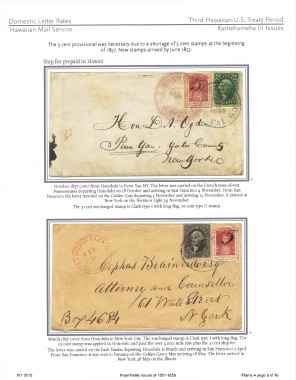 Domestic Letter Rates
Third Hawaiian-U.S. Treaty Period
Hawaiian Mail Service
Kamehameha III Issues
The 5 cent provisional was necessary due to a shortage of 5 cent stamps at the beginning
of 1857. New stamps arrived by June 1857.
Ship fee prepaid in Hawaii
Hon. D. A. Ogden
Penn Yan Yates County
New York
October 1857 cover from Honolulu to Penn Yan NY. The letter was carried on the French man-of-war
departing Honolulu on 18 October and arriving in San Francisco 4 November. From San
Francisco the letter traveled on the Golden Gate departing 5 November and arriving 19 November. It arrived in
New York on the Northern Light 29 November.
The 5 cent surcharged stamp is Clark type I with long flag. 10 cent type II stamp.
Orphas Brainerd Esq
Attorney and Counsellor
61 Wall Street
N York
Box 4684
March 1857 cover from Honolulu to New York City. The surcharged stamp is Clark type I with long flag. The
12 cent stamp was applied in Honolulu and paid the over 3,000 mile rate plus the 2 cent ship fee.
The letter was carried on the bark Yankee departing Honolulu in March and arriving in San Francisco 5 April.
From San Francisco it was sent to Panama on the Golden
New York 28 May on the Illinois.
NY 2016
Imperforate Issues of 1851-1856
Frame 4 page 5 of 16